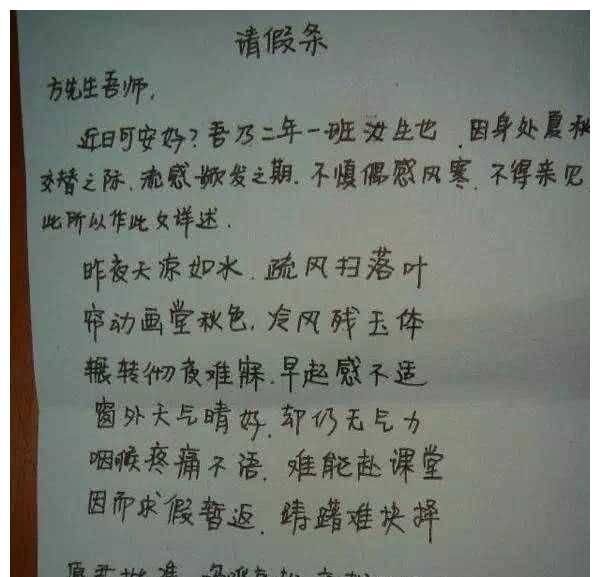 请假条
方先生吾师,
近日可安好?吾乃二年一班汝生也,因身处夏秋
交替之际,流感频发之期,不慎偶感风寒,不得来见
此所以作此文详述.
昨夜天凉如水,疏风扫落叶
帘动画堂秋色,冷风残玉体
辗转彻夜难寐,早起感不适
窗外天气晴好,却仍无气力
咽喉疼痛不语,难能赴课堂
因而求假暂返,踌躇难抉择